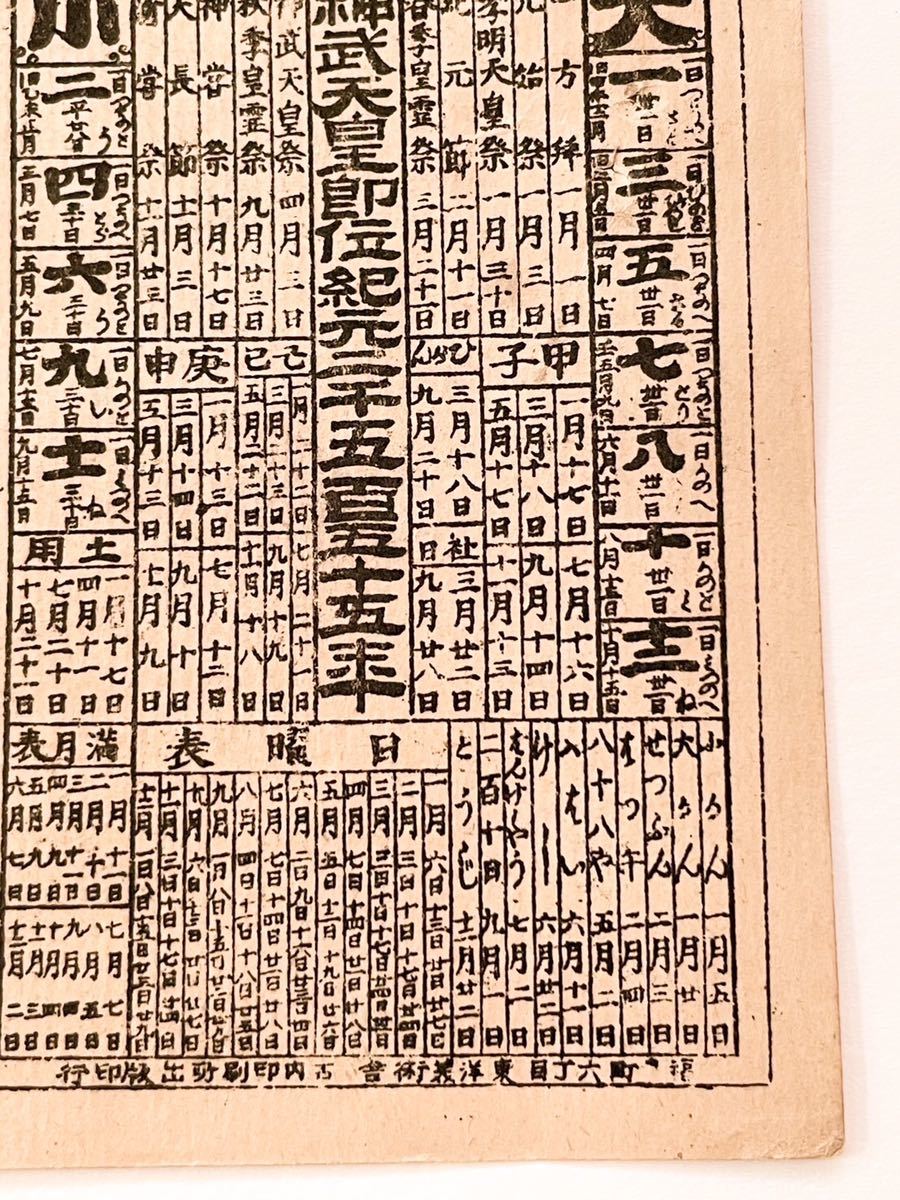 大
一 卅一日 一日つちのと
三 卅一日
四月七日
五 卅一日 一日つちのへ
七 卅一日 一日つちのと とり
六月十一日
八 卅一日 一日かのへ
十 卅一日 一日かのと
十月十五日
十二 卅一日 一日かのへ ね
方拝 一月一日
元始祭 一月三日
孝明天皇祭 一月三十日
紀元節 二月十一日
春季皇霊祭 三月二十一日
神武天皇即位紀元二千五百五十五年
武天皇祭 四月三日
秋季皇霊祭 九月廿三日
神嘗祭 十月十七日
天長節 十一月三日
嘗祭 十一月廿三日
小
二 平廿八日 一日つちのと う
四 三十日 一日つちのへ とら
三月七日
六 三十日 一日つちのと う
五月九日
九 三十日 一日かのと い
七月十三日
十一 三十日 一日かのへ ね
九月十五日
甲子
一月十七日 七月十六日
三月十八日 九月十四日
五月十七日 十一月十三日
ひがん
三月十八日
九月二十日
社日
三月廿二日
九月廿八日
己巳
一月二十二日 七月二十一日
三月二十三日 九月十九日
五月二十二日 十一月十八日
庚申
一月十三日 七月十二日
三月十四日 九月十日
五月十三日 七月九日
土用
一月十七日
四月十一日
七月二十日
十月二十一日
小かん 一月五日
大かん 一月廿日
せつぶん 二月三日
はつ午 二月四日
八十八や 五月二日
入ばい 六月十一日
げし 六月廿二日
はんげしやう 七月二日
二百十日 九月一日
とうじ 十二月廿二日
日曜表
一月 六日 十三日 廿日 廿七日
二月 三日 十日 十七日 廿四日
三月 三日 十日 十七日 廿四日 卅一日
四月 七日 十四日 廿一日 廿八日
五月 五日 十二日 十九日 廿六日
六月 二日 九日 十六日 廿三日 三十日
七月 七日 十四日 廿一日 廿八日
八月 四日 十一日 十八日 廿五日
九月 一日 八日 十五日 廿二日 廿九日
十月 六日 十三日 廿日 廿七日
十一月 三日 十日 十七日 廿四日
十二月 一日 八日 十五日 廿二日 廿九日
満月表
一月十一日 七月七日
二月十日 八月五日
三月十一日 九月四日
四月九日 十月四日
五月九日 十一月三日
六月七日 十二月二日
町六丁目東洋美術舎 内印刷所出版印行